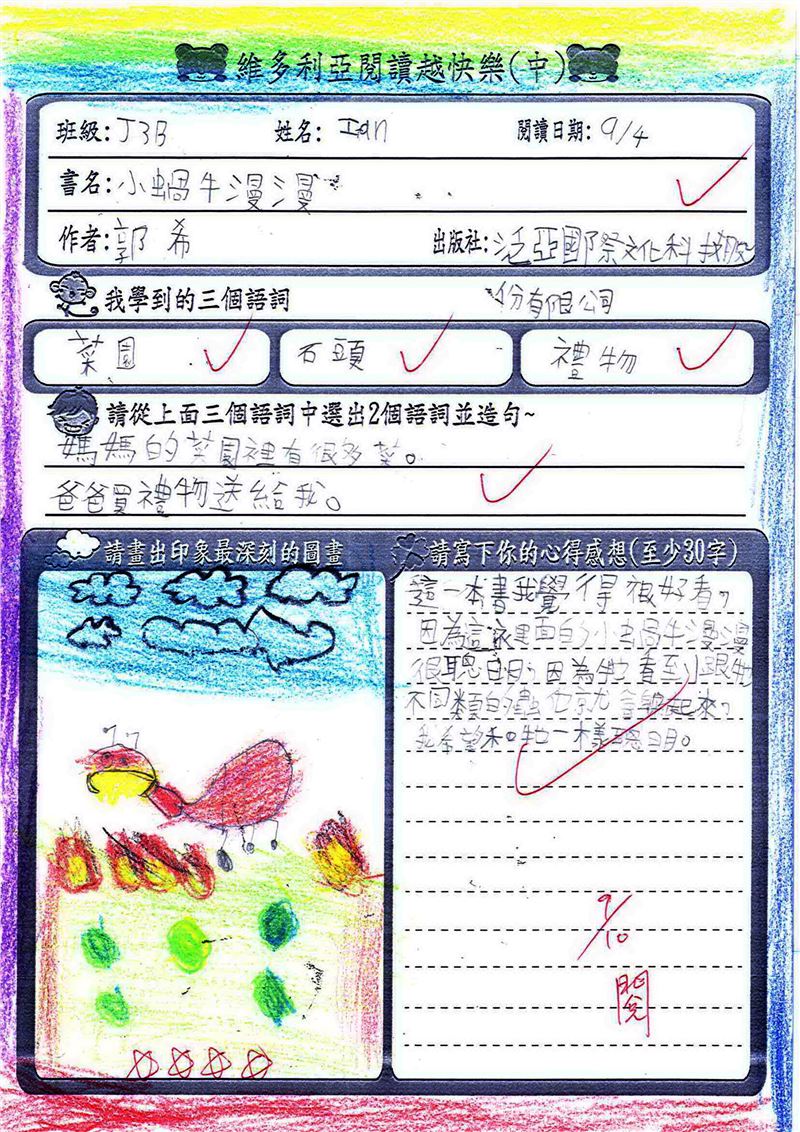 維多利亞閱讀越快樂(中)
班級:J3B 姓名:Ian 閱讀日期:9/4
書名:小蝸牛漫漫
作者:郭希 出版社:泛亞國際文化科技股
份有限公司
我學到的三個語詞
菜園 石頭 禮物
請從上面三個語詞中選出2個語詞並造句~
媽媽的菜園裡有很多菜。
爸爸買禮物送給我。
請畫出印象最深刻的圖畫
請寫下你的心得感想(至少30字)
這一本書我覺得很好看,
因為這裡面的小蝸牛漫漫
很聰明,因為牠看到跟牠
不同類的蟲他就會躲起來,
我希望和牠一樣聰明。
9/10
閱